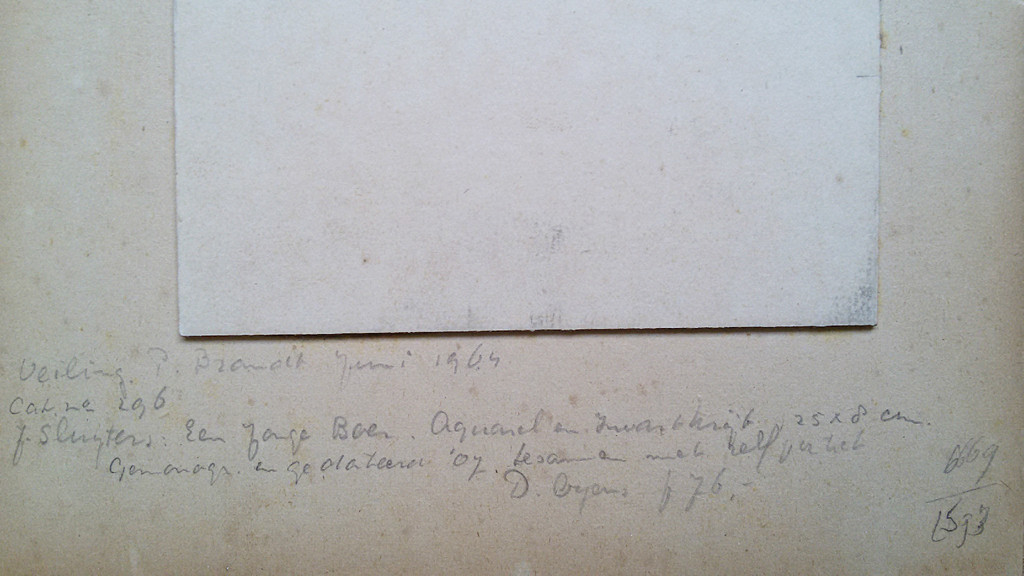 Veiling P. Brandt Juni 1964
Cat. no 296
J. Sluyters: Een jonge Boer. Aquarel en zwart krijt. 25 x 8 cm.
Gemonogr. en gedateerd '07. tesamen met zelfportret
D. f 76,-
669